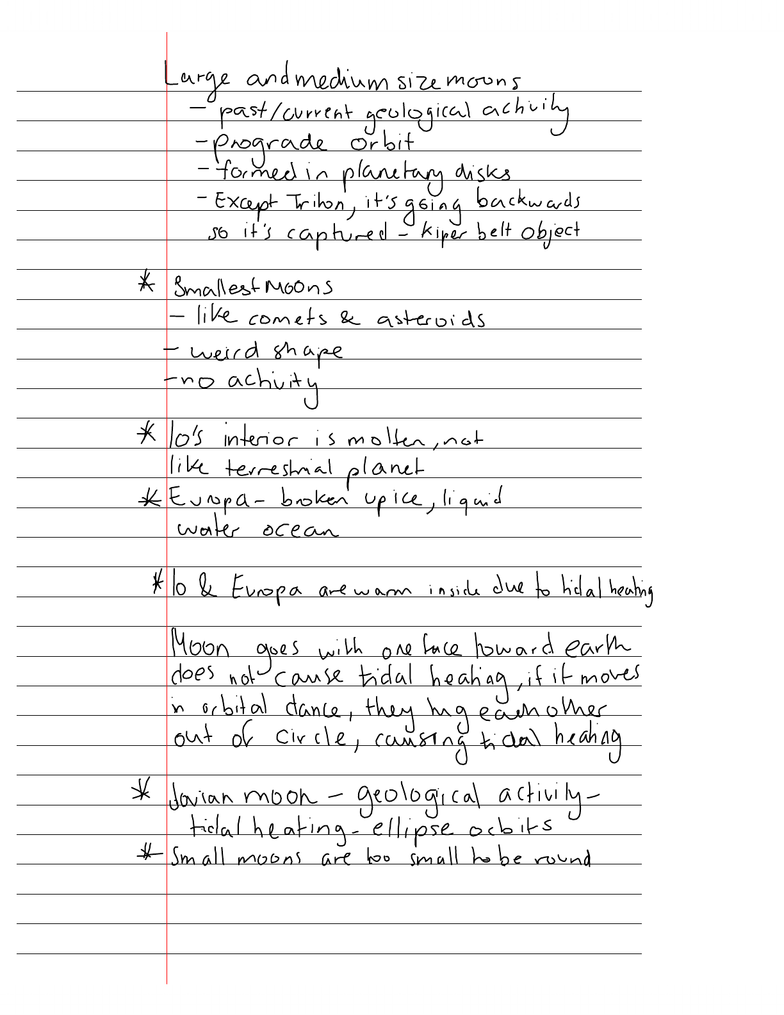 Large and medium size moons
- past/current geological activity
- prograde orbit
- formed in planetary disks
- Except Triton, it's going backwards
so it's captured - kiper belt object
* Smallest Moons
- like comets & asteroids
- weird shape
- no activity
* Io's interior is molten, not
like terrestrial planet
* Europa - broken up ice, liquid
water ocean
* Io & Europa are warm inside due to tidal heating
Moon goes with one face toward earth
does not cause tidal heating, if it moves
in orbital dance, they tug each other
out of circle, causing tidal heating
* Jovian moon - geological activity -
tidal heating - ellipse orbits
* Small moons are too small to be round